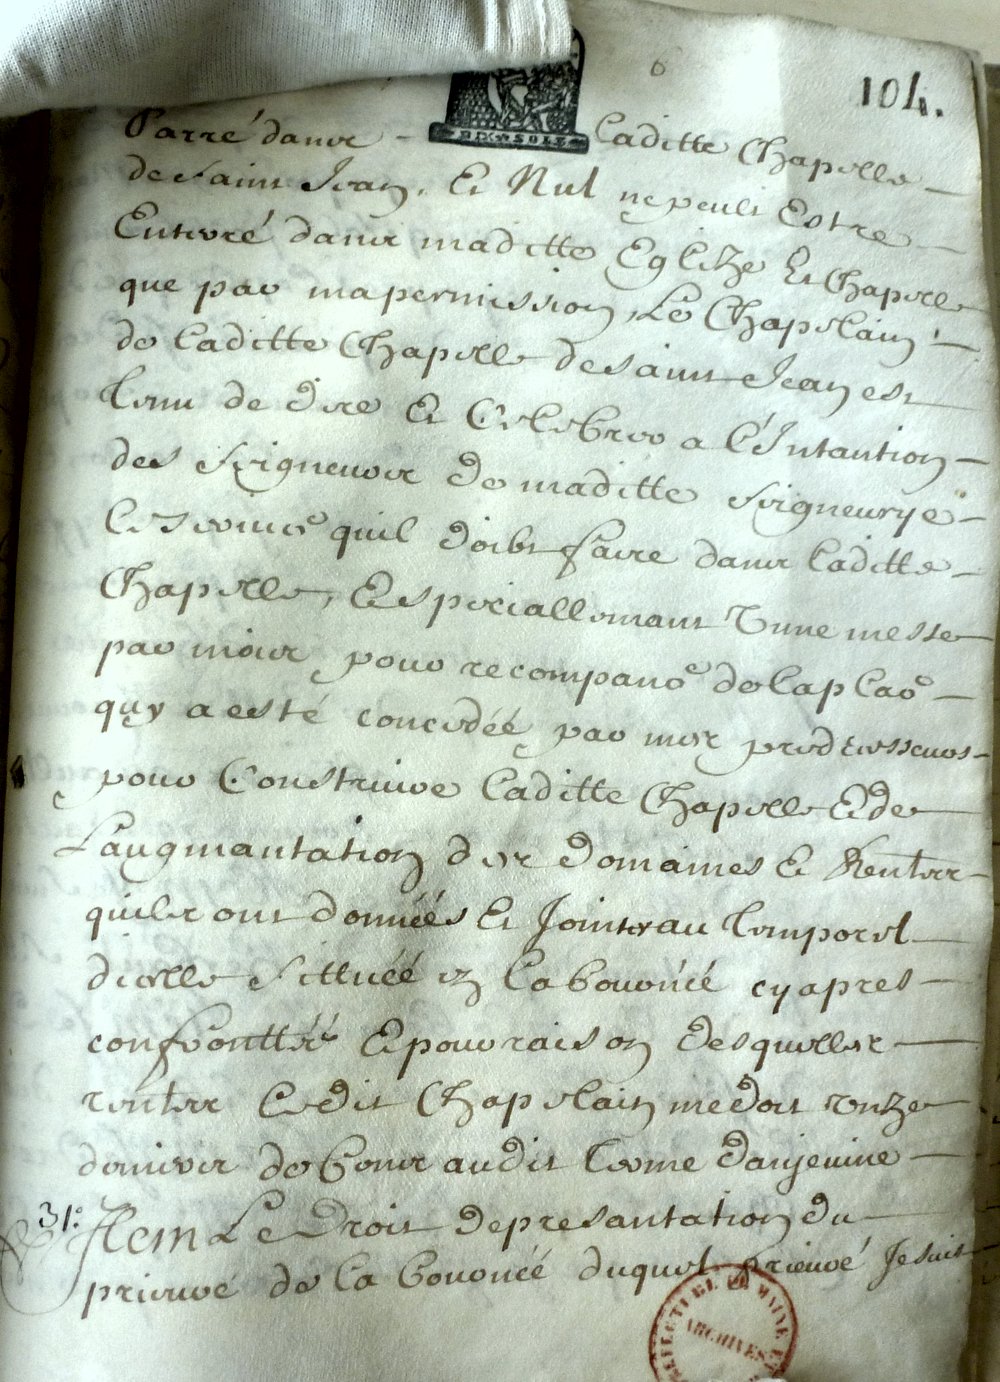 6
104.
SIX SOLS
Parré dans laditte Chapelle
de Saint Jean. Et Nul ne peult Estre
Enterré dans maditte Eglize Et Chapelle
que par ma permission, Le Chapelain
de laditte Chapelle de Saint Jean est
tenu de dire Et Celebrer a l'Intantion
des Seigneurs de maditte Seigneurye
le service quil doibt faire dans laditte
Chapelle, Et speciallemant Vune messe
par mois, pour recompance de la place
quy a esté concedéé par mes predecesseurs
pour Construire laditte Chapelle Et de
L'augmantation des Domaines Et Rentes
quils ont donnéés Et Jointes au temporel
dicelle sittuéé en la bouoncé cy apres
confronttéé Et pour raison desquelles
rentes ledit Chapelain me doit Vnze
deniers de Cens audit terme d'angevine
31.° Item Le Droit de presantation du
prieuré de la bouoncéé duquel prieuré Je suis
PREFECTURE DE MAINE ET
ARCHIVES